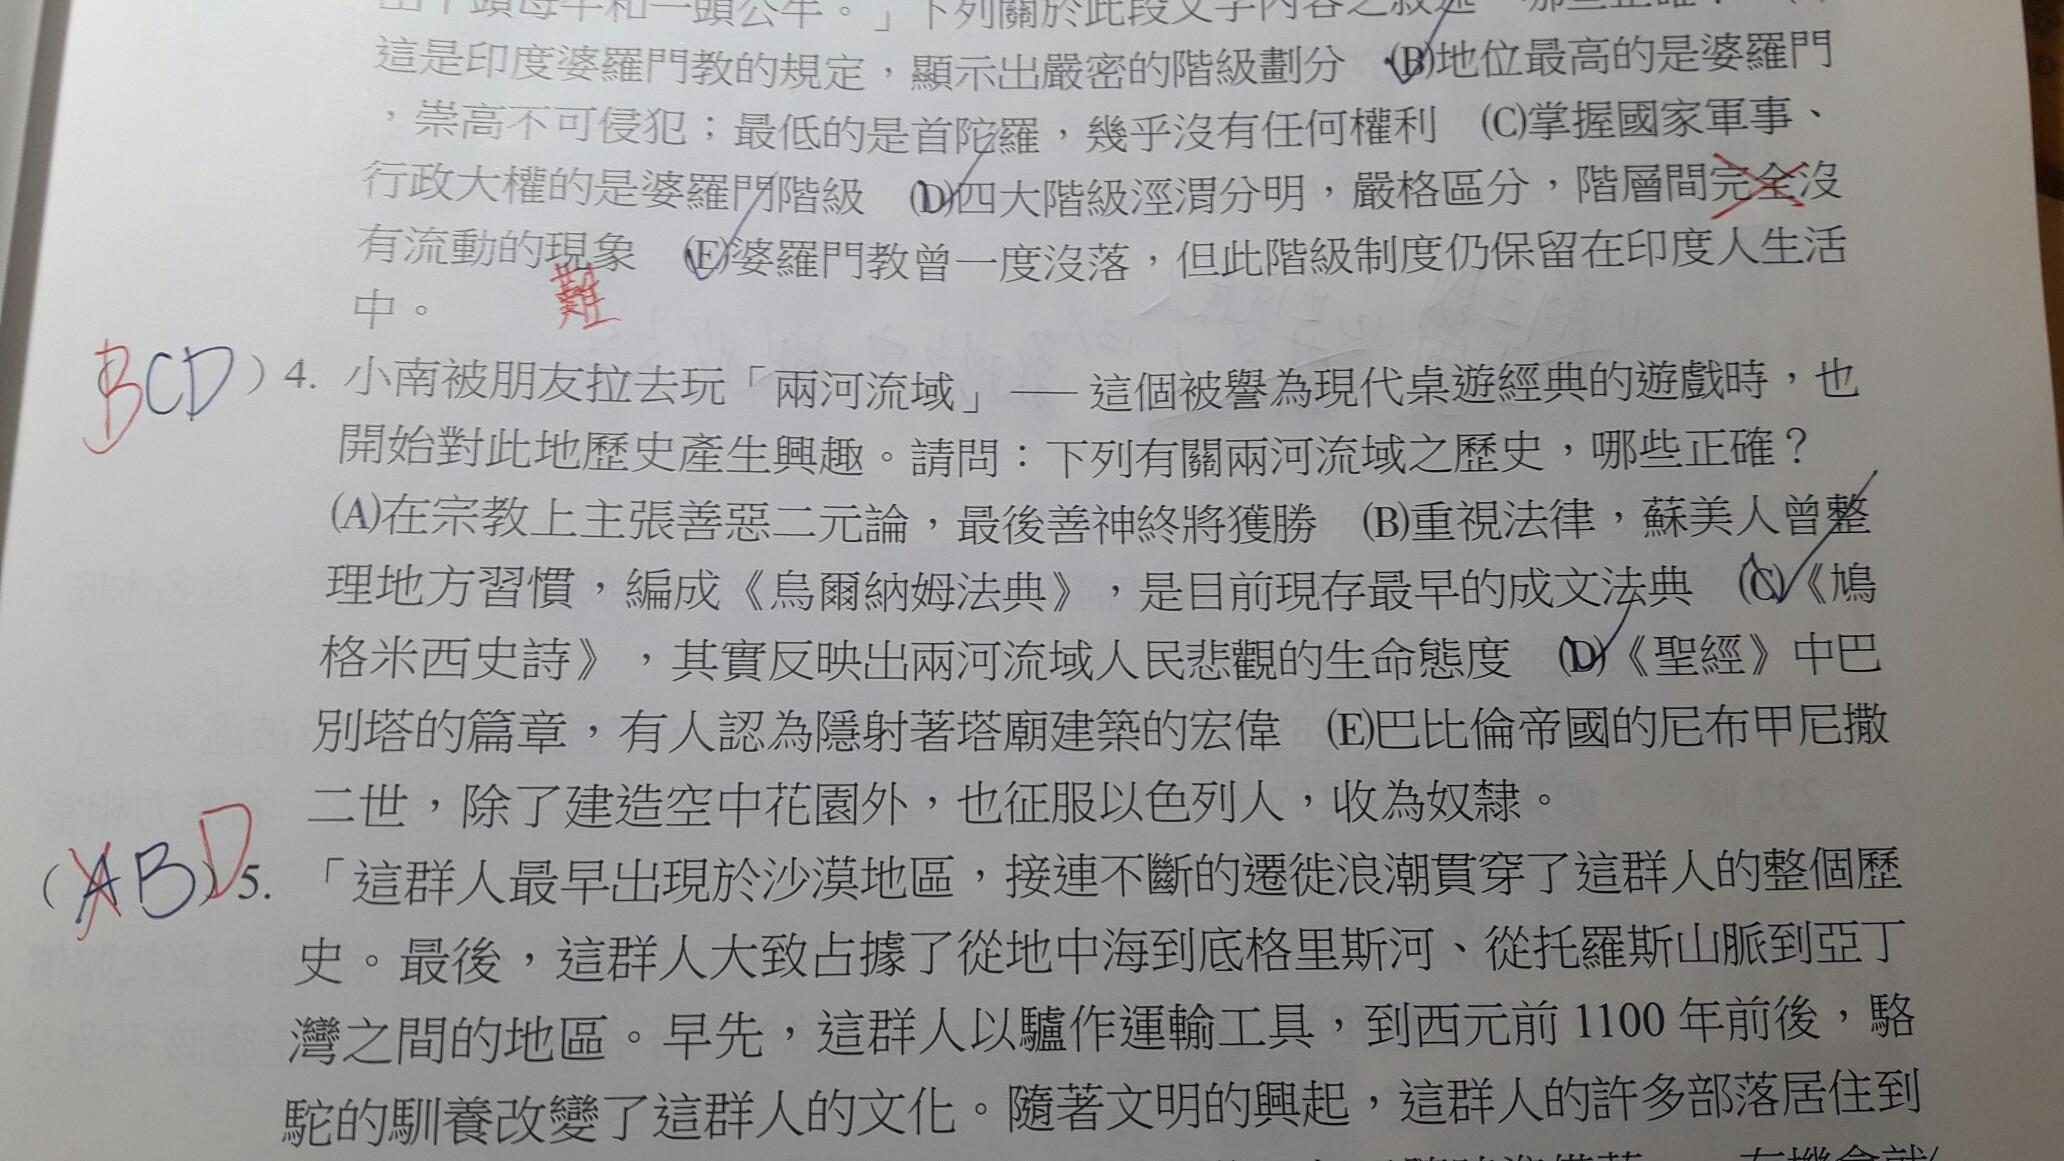 下列關於此段文字內容之敘述
這是印度婆羅門教的規定，顯示出嚴密的階級劃分　(B)地位最高的是婆羅門
，崇高不可侵犯；最低的是首陀羅，幾乎沒有任何權利　(C)掌握國家軍事、
行政大權的是婆羅門階級　(D)四大階級涇渭分明，嚴格區分，階層間完全沒
有流動的現象　(E)婆羅門教曾一度沒落，但此階級制度仍保留在印度人生活
中。
難
BCD）4. 小南被朋友拉去玩「兩河流域」——這個被譽為現代桌遊經典的遊戲時，也
開始對此地歷史產生興趣。請問：下列有關兩河流域之歷史，哪些正確？
(A)在宗教上主張善惡二元論，最後善神終將獲勝　(B)重視法律，蘇美人曾整
理地方習慣，編成《烏爾納姆法典》，是目前現存最早的成文法典　(C)《鳩
格米西史詩》，其實反映出兩河流域人民悲觀的生命態度　(D)《聖經》中巴
別塔的篇章，有人認為隱射著塔廟建築的宏偉　(E)巴比倫帝國的尼布甲尼撒
二世，除了建造空中花園外，也征服以色列人，收為奴隸。
（ABD）5. 「這群人最早出現於沙漠地區，接連不斷的遷徙浪潮貫穿了這群人的整個歷
史。最後，這群人大致占據了從地中海到底格里斯河、從托羅斯山脈到亞丁
灣之間的地區。早先，這群人以驢作運輸工具，到西元前 1100 年前後，駱
駝的馴養改變了這群人的文化。隨著文明的興起，這群人的許多部落居住到